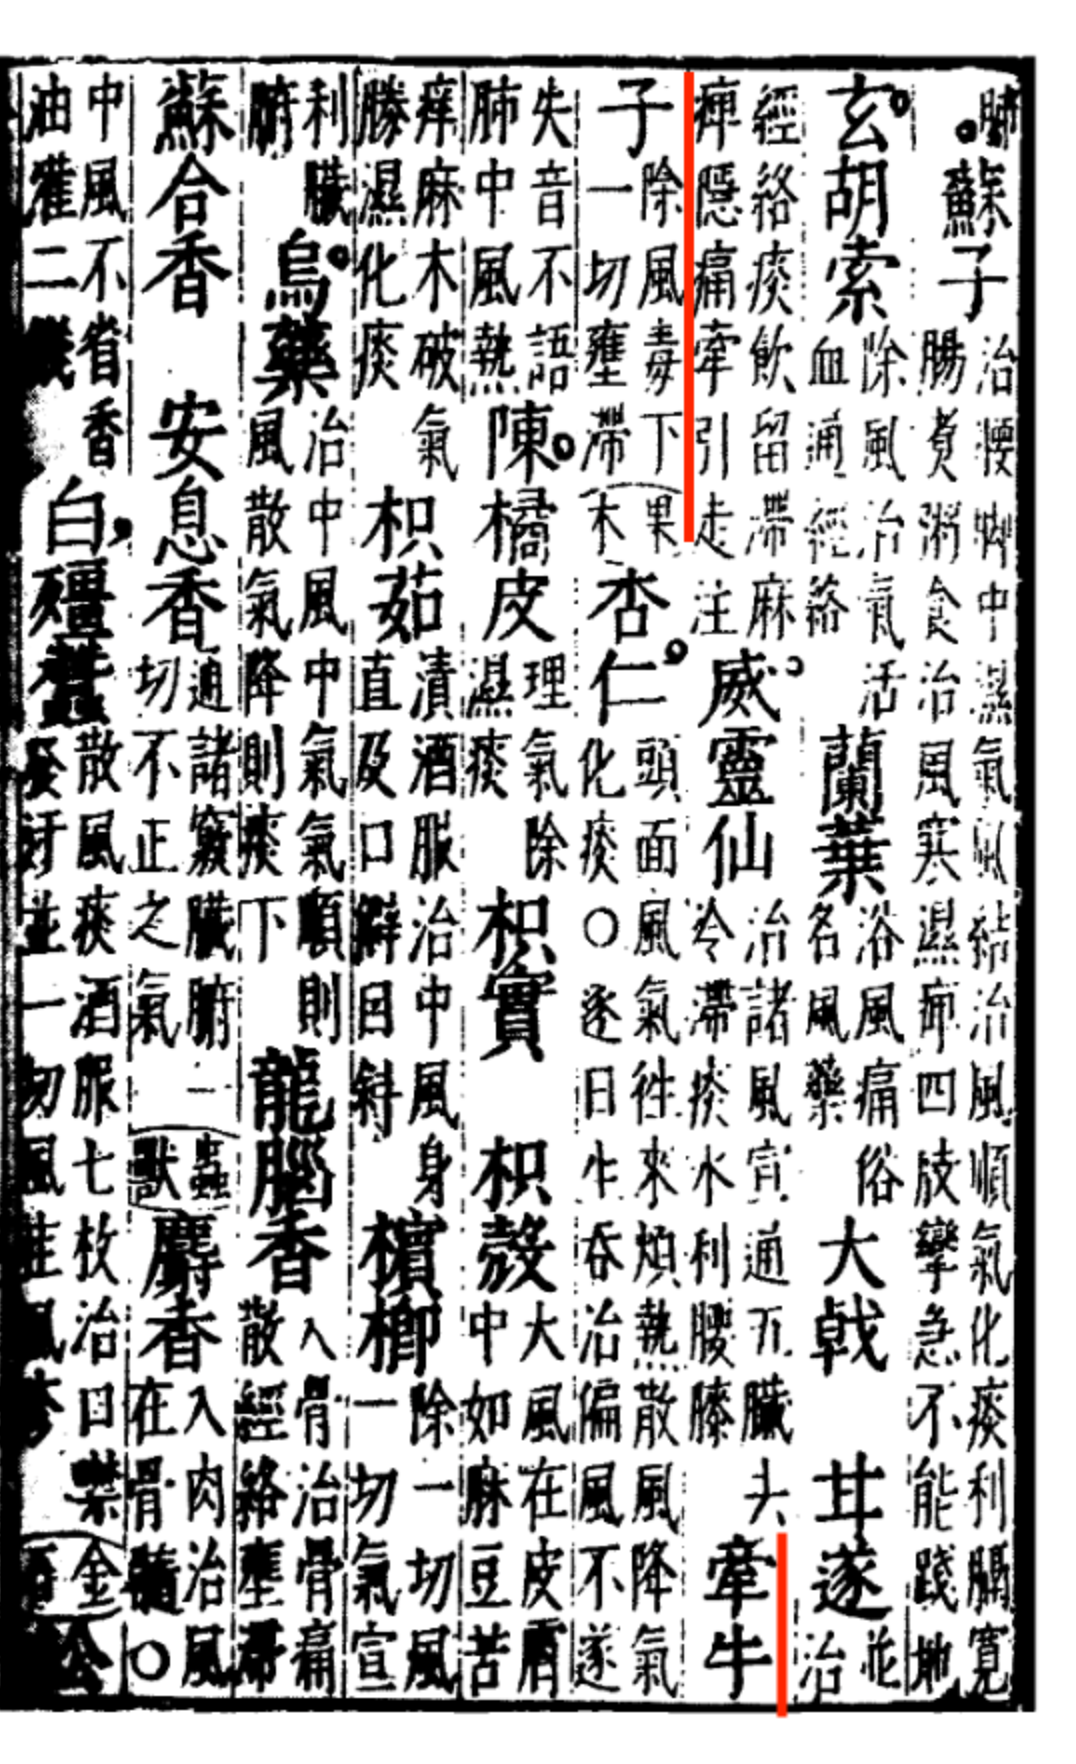 肺蘇子治腰脚中濕氣風結治風順氣化痰利膈寬腸煮粥食治風寒濕痹四肢攣急不能踐地
玄胡索除風治氣活血通經絡蘭葉浴風痛俗名風藥大戟甘遂並治
經絡痰飲留滯麻痺隱痛牽引走注威靈仙治諸風宣通五臟去冷滯痰水利腰膝牽牛
子除風毒下一切壅滯果木杏仁頭面風氣往來煩熱散風降氣化痰○逐日生吞治偏風不遂
失音不語肺中風熱陳橘皮理氣除濕痰枳實枳殼大風在皮膚中如麻豆苦
痒麻木破氣勝濕化痰枳茹漬酒服治中風身直及口僻目斜檳榔除一切風一切氣宣
利臟腑烏藥治中風中氣氣順則風散氣降則痰下龍腦香入骨治骨痛散經絡壅滯
蘇合香安息香通諸竅臟腑一切不正之氣蟲獸麝香入肉治風在骨髓○
中風不省香油灌二錢白殭蠶散風痰酒服七枚治口噤發汗並一切風疰風疹金石